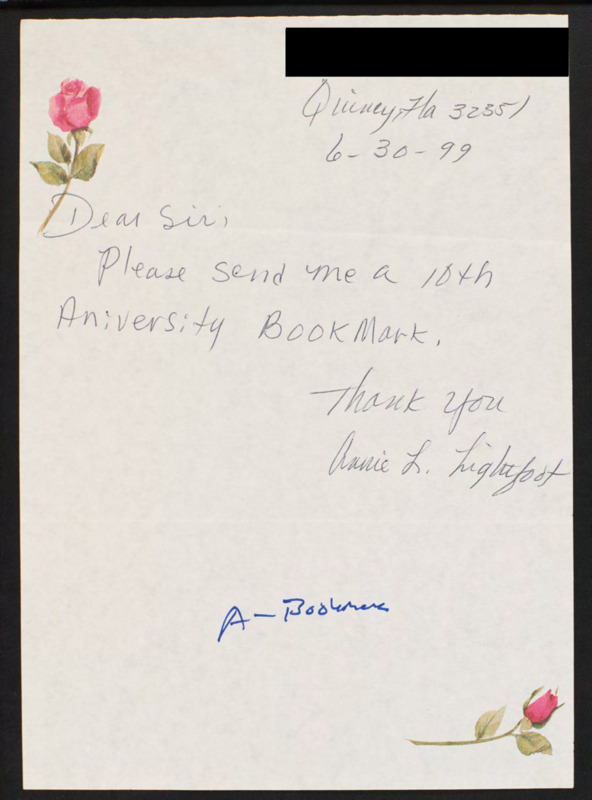 Quincy, Fla 32351
6-30-99
Dear Sir,
Please send me a 10th
Aniversity BookMark.
Thank you
Annie L. Lightfoot
A - Bookmark